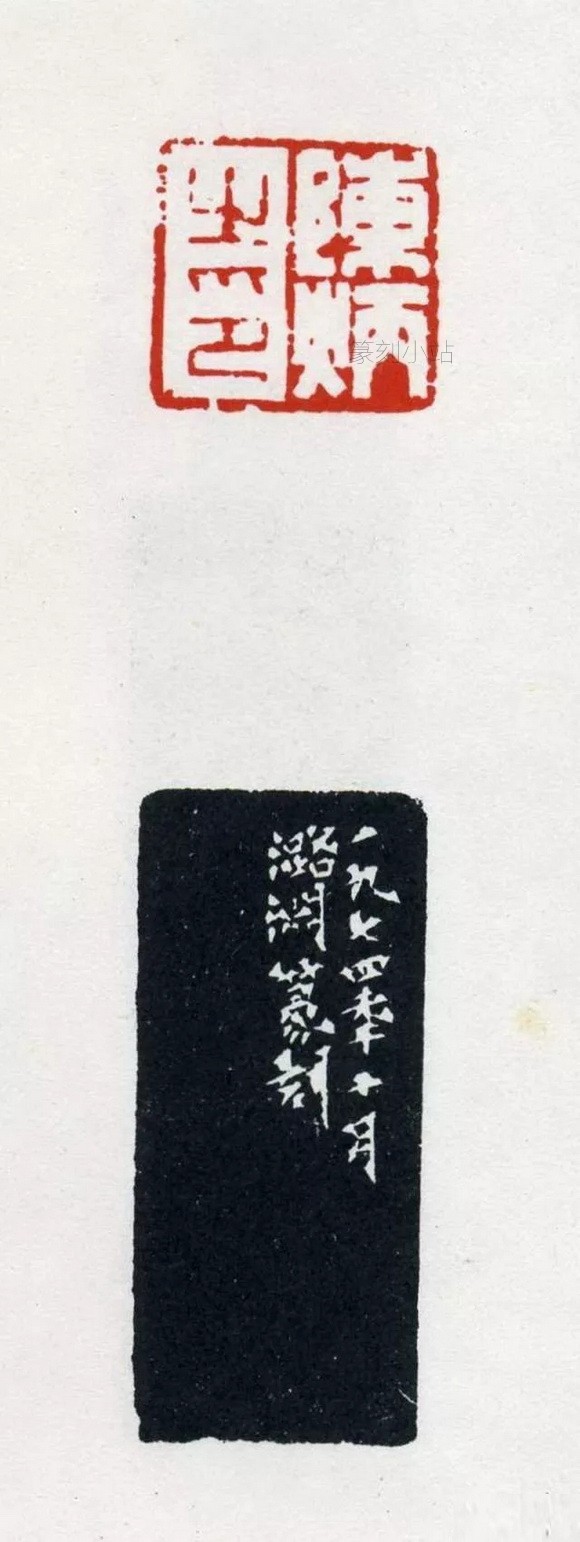 陳炳
印
篆刻小站
一九七四秊十月
潞淵篆刻